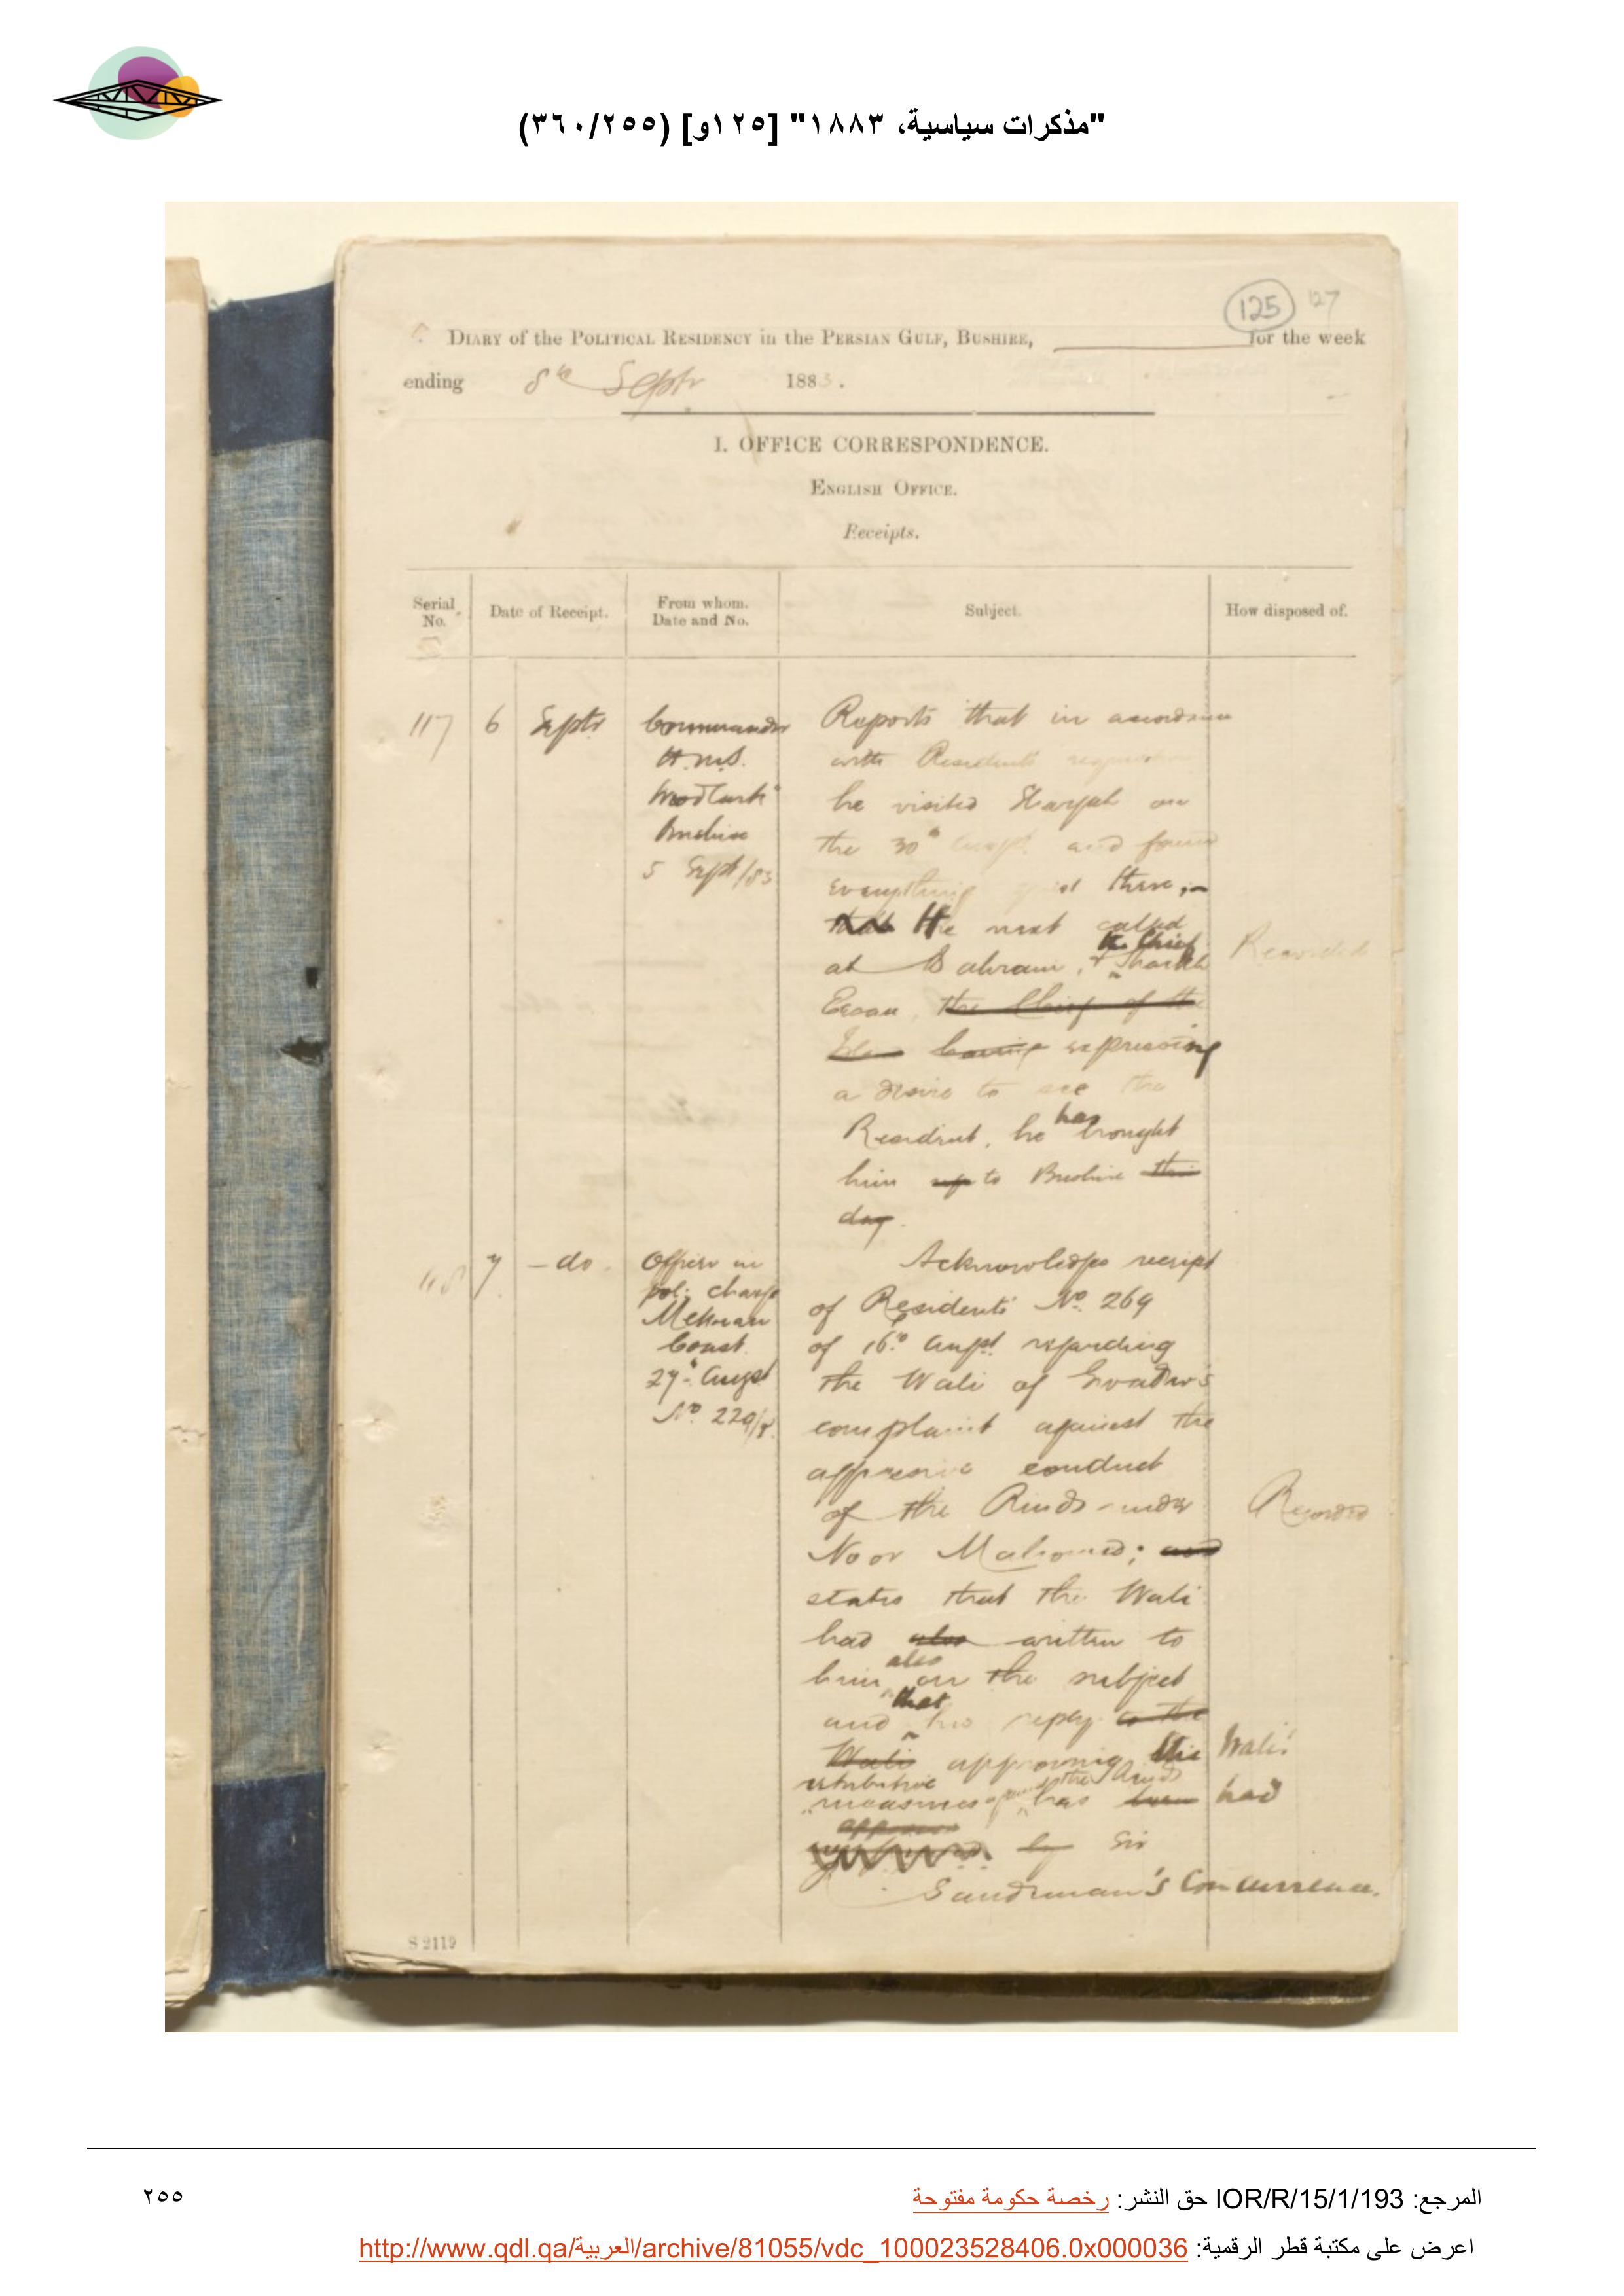 "مذكرات سياسية، ١٨٨٣" [١٢٥و] (٣٦٠/٢٥٥)
125 127
DIARY of the POLITICAL RESIDENCY in the PERSIAN GULF, BUSHIRE, for the week
ending 8th Septr 1883.
I. OFFICE CORRESPONDENCE.
ENGLISH OFFICE.
Receipts.
Serial No.
Date of Receipt.
From whom. Date and No.
Subject.
How disposed of.
117
6 Septr
Commander
H.M.S.
Woodlark
Bushire
5 Sept/83
Reports that in accordance
with Resident's
he visited Shargah on
the 30th Augt. and found
everything quiet there,
that He next called
at Bahrain, & the Chief Shaikh
Esau, the Chief of the
having expressing
a desire to see the
Resident, he has brought
him up to Bushire this
day.
Recorded
118
7 - do.
Officer in
pol: charge
Mekran
Coast.
27th Augst
No. 229/
Acknowledges receipt
of Residents No. 269
of 16th Augst. regarding
the Wali of Gwadur's
complaint against the
oppressive conduct
of the Rinds under
Noor Mahomed; and
states that the Wali
had also written to
him also on the subject
and that his reply to the
Wali approving the Wali's
retributive
measures the Rinds has been had
approved
by Sir
Sandeman's Concurrence.
Recorded
S 2119
المرجع: IOR/R/15/1/193 حق النشر: رخصة حكومة مفتوحة
٢٥٥
اعرض على مكتبة قطر الرقمية: http://www.qdl.qa/العربية/archive/81055/vdc_100023528406.0x000036